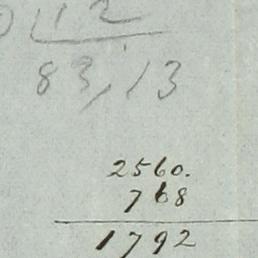 112
83,13
2560.
768
1792